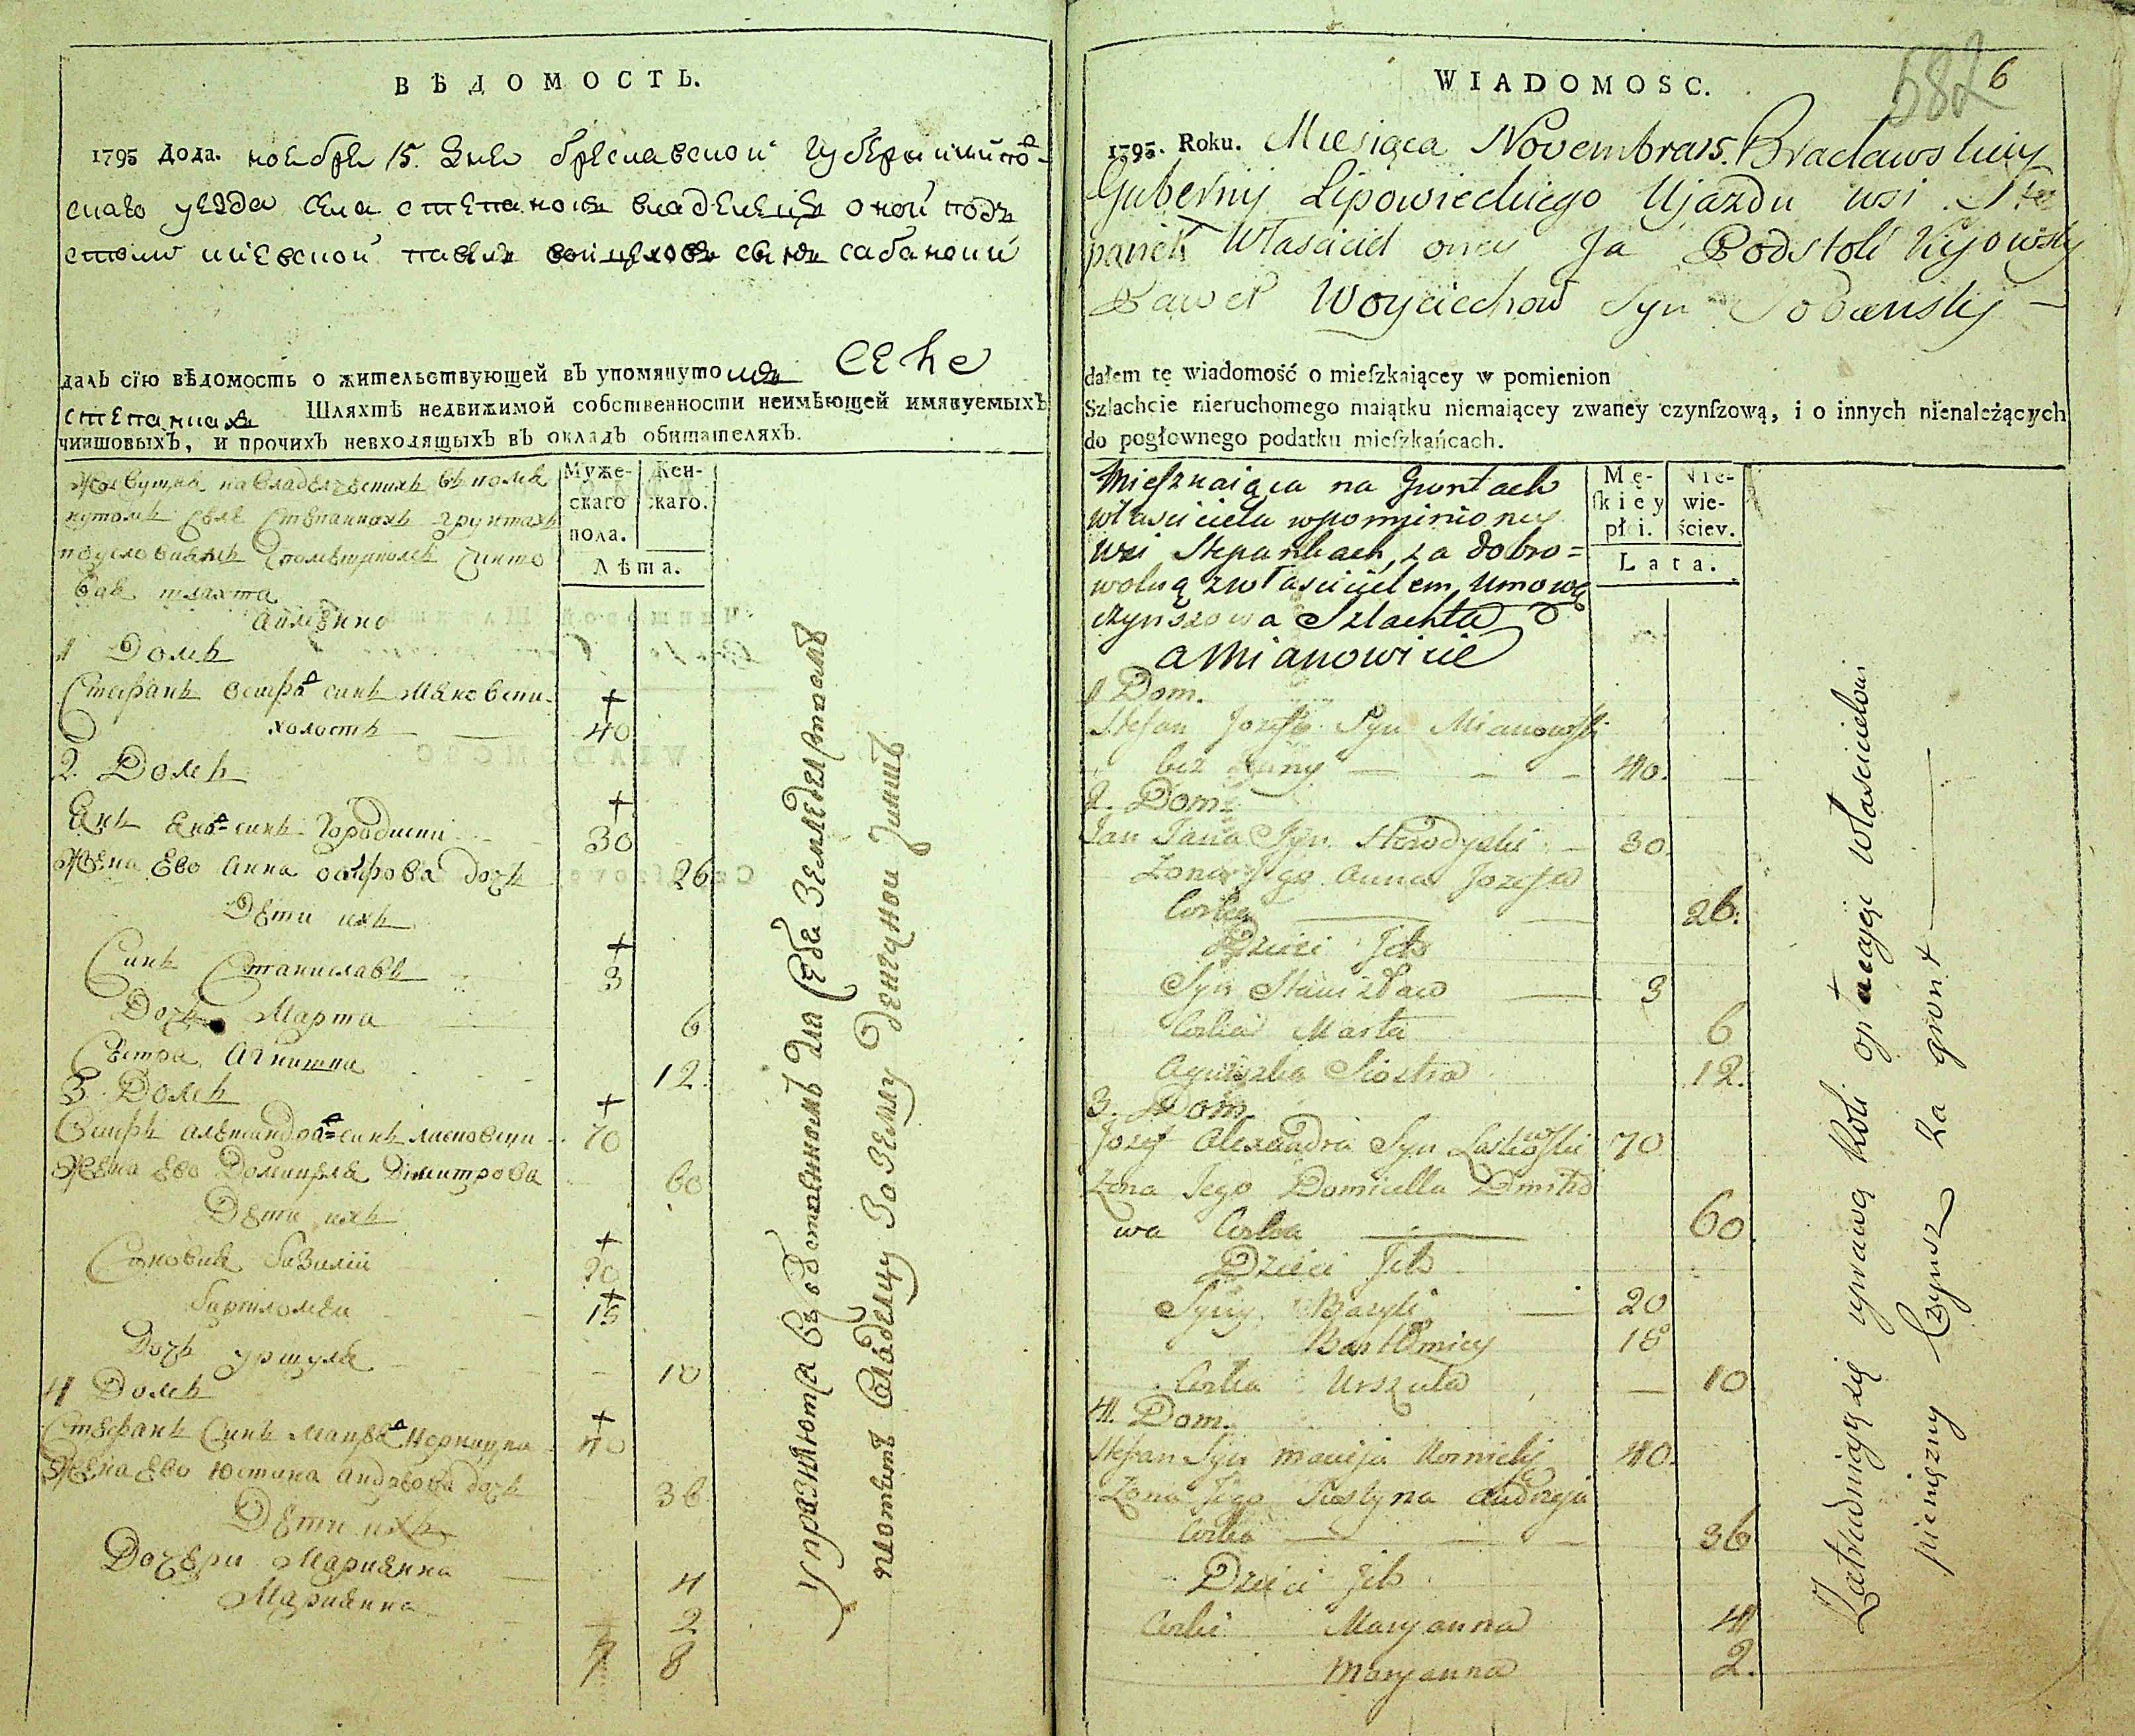 ВѢДОМОСТЬ.
1795 года. ноебре 15. дне брeславской губернии
скаго уезда села степанокъ владелецъ оной подъ
столи киевской павелъ войцеховъ сынъ сабански
далъ сїю вѣдомость о жительствующей въ упомянутомъ селе
степанкахъ Шляхтѣ недвижимой собственности неимѣющей имянуемыхъ
чиншовыхъ, и прочихъ невходящыхъ въ окладъ обитателяхъ.
Муже- Жен-
скаго скаго.
пола.
Лѣта.
Живущая на владелческихъ въ помя
нутомъ селе степанкахъ грунтахъ
шляхта
аимѣнно
1 Домъ
Стефанъ осифа синъ Мяновски
холостъ 40
2. Домъ
Янъ Яна синъ Городиски 30
Жена Ево Анна осифова дочъ 26
Дети ихъ
Синъ Станиславъ 3
Дочъ Марта 6
Сестра Агнишка 12.
3. Домъ
Осифъ александра синъ ласковски 70
Жена Ево Домицеля Димитрова 60
Дети ихъ
Синовия базилий 20
бартломей 18
Дочъ уршуля 10
4 Домъ
Стефанъ Синъ Мацея Корницки 40
Жена Ево Юстина андреева дочъ 36
Дети ихъ
Дочери Марианна 4
Марианна 2
7 8
Упразняютса для себя земледелством
платятъ владелцу за землу денежной чиншъ
582 6
WIADOMOSC.
1795. Roku. Miesiąca Novembra 15. Bracławskiey
Gubernij Lipowieckiego Ujazdu wsi Ste
panek Własciciel oney Ja Podstoli Kijowsky
Paweł Woyciechow Syn Sobansky
dałem tę wiadomość o mieſzkaiącey w pomienion
Szlachcie nieruchomego maiątku niemaiącey zwaney czynſzową, i o innych nienależących
do pogłownego podatku mieſzkańcach.
Mę- Nie-
ſkiey wie-
płci. ściey.
Lata.
Mieszkaiąca na Gruntach
własciciela wpomnioney
wsi Stepankach, za dobro=
wolną z własicielem umową
czynszowa Szlachta
a Mianowicie
1 Dom.
Stefan Jozefa Syn Mianowski
bez żony 40.
2. Dom.
Jan Jana Syn Horodyski 30.
Zona Jego Anna Jozefa
Corka 26.
Dzieci Jch
Syn Stanisław 3
Corka Marta 6
Agniszka Siostra 12.
3. Dom.
Jozef Alexandra Syn Laskowski 70
Zona Jego Domicella Dmitro
wa Corka 60
Dzieci Jch
Syny Bazyli 20
Bartłomiey 18
Corka Urszula 10
4. Dom.
Stefan Syn Macieja Kornicky 40.
Zona Jego Justyna Andreja
Corka 36
Dzieci Jch
Corki Maryanna 4
Maryanna 2.
Zatrudniający się uprawą Roli opłacaję własicielowi
pieniężny Czynsz za grunt